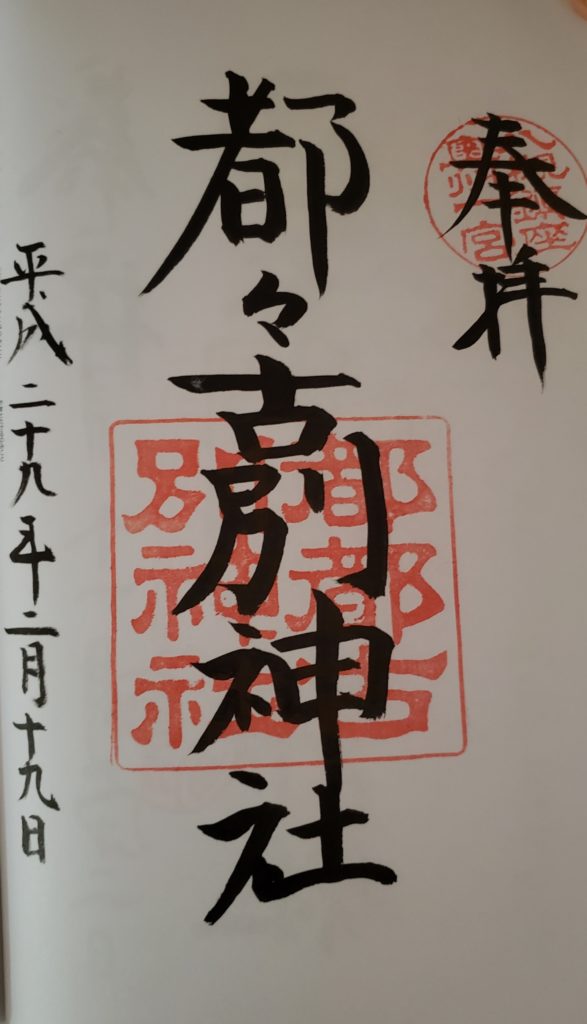 奉拝
八槻鎮座
奥州一宮
都々古別神社
都都古
別神社
平成二十九年二月十九日